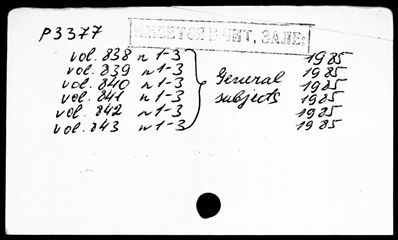 P3377
ИМЕЕТСЯ В ЧИТ. ЗАЛЕ:
vol. 838 n 1-3 1985
vol. 839 n 1-3 General 1985
vol. 840 n 1-3 subjects 1985
vol. 841 n 1-3 1985
vol. 842 n 1-3 1985
vol. 843 n 1-3 1985